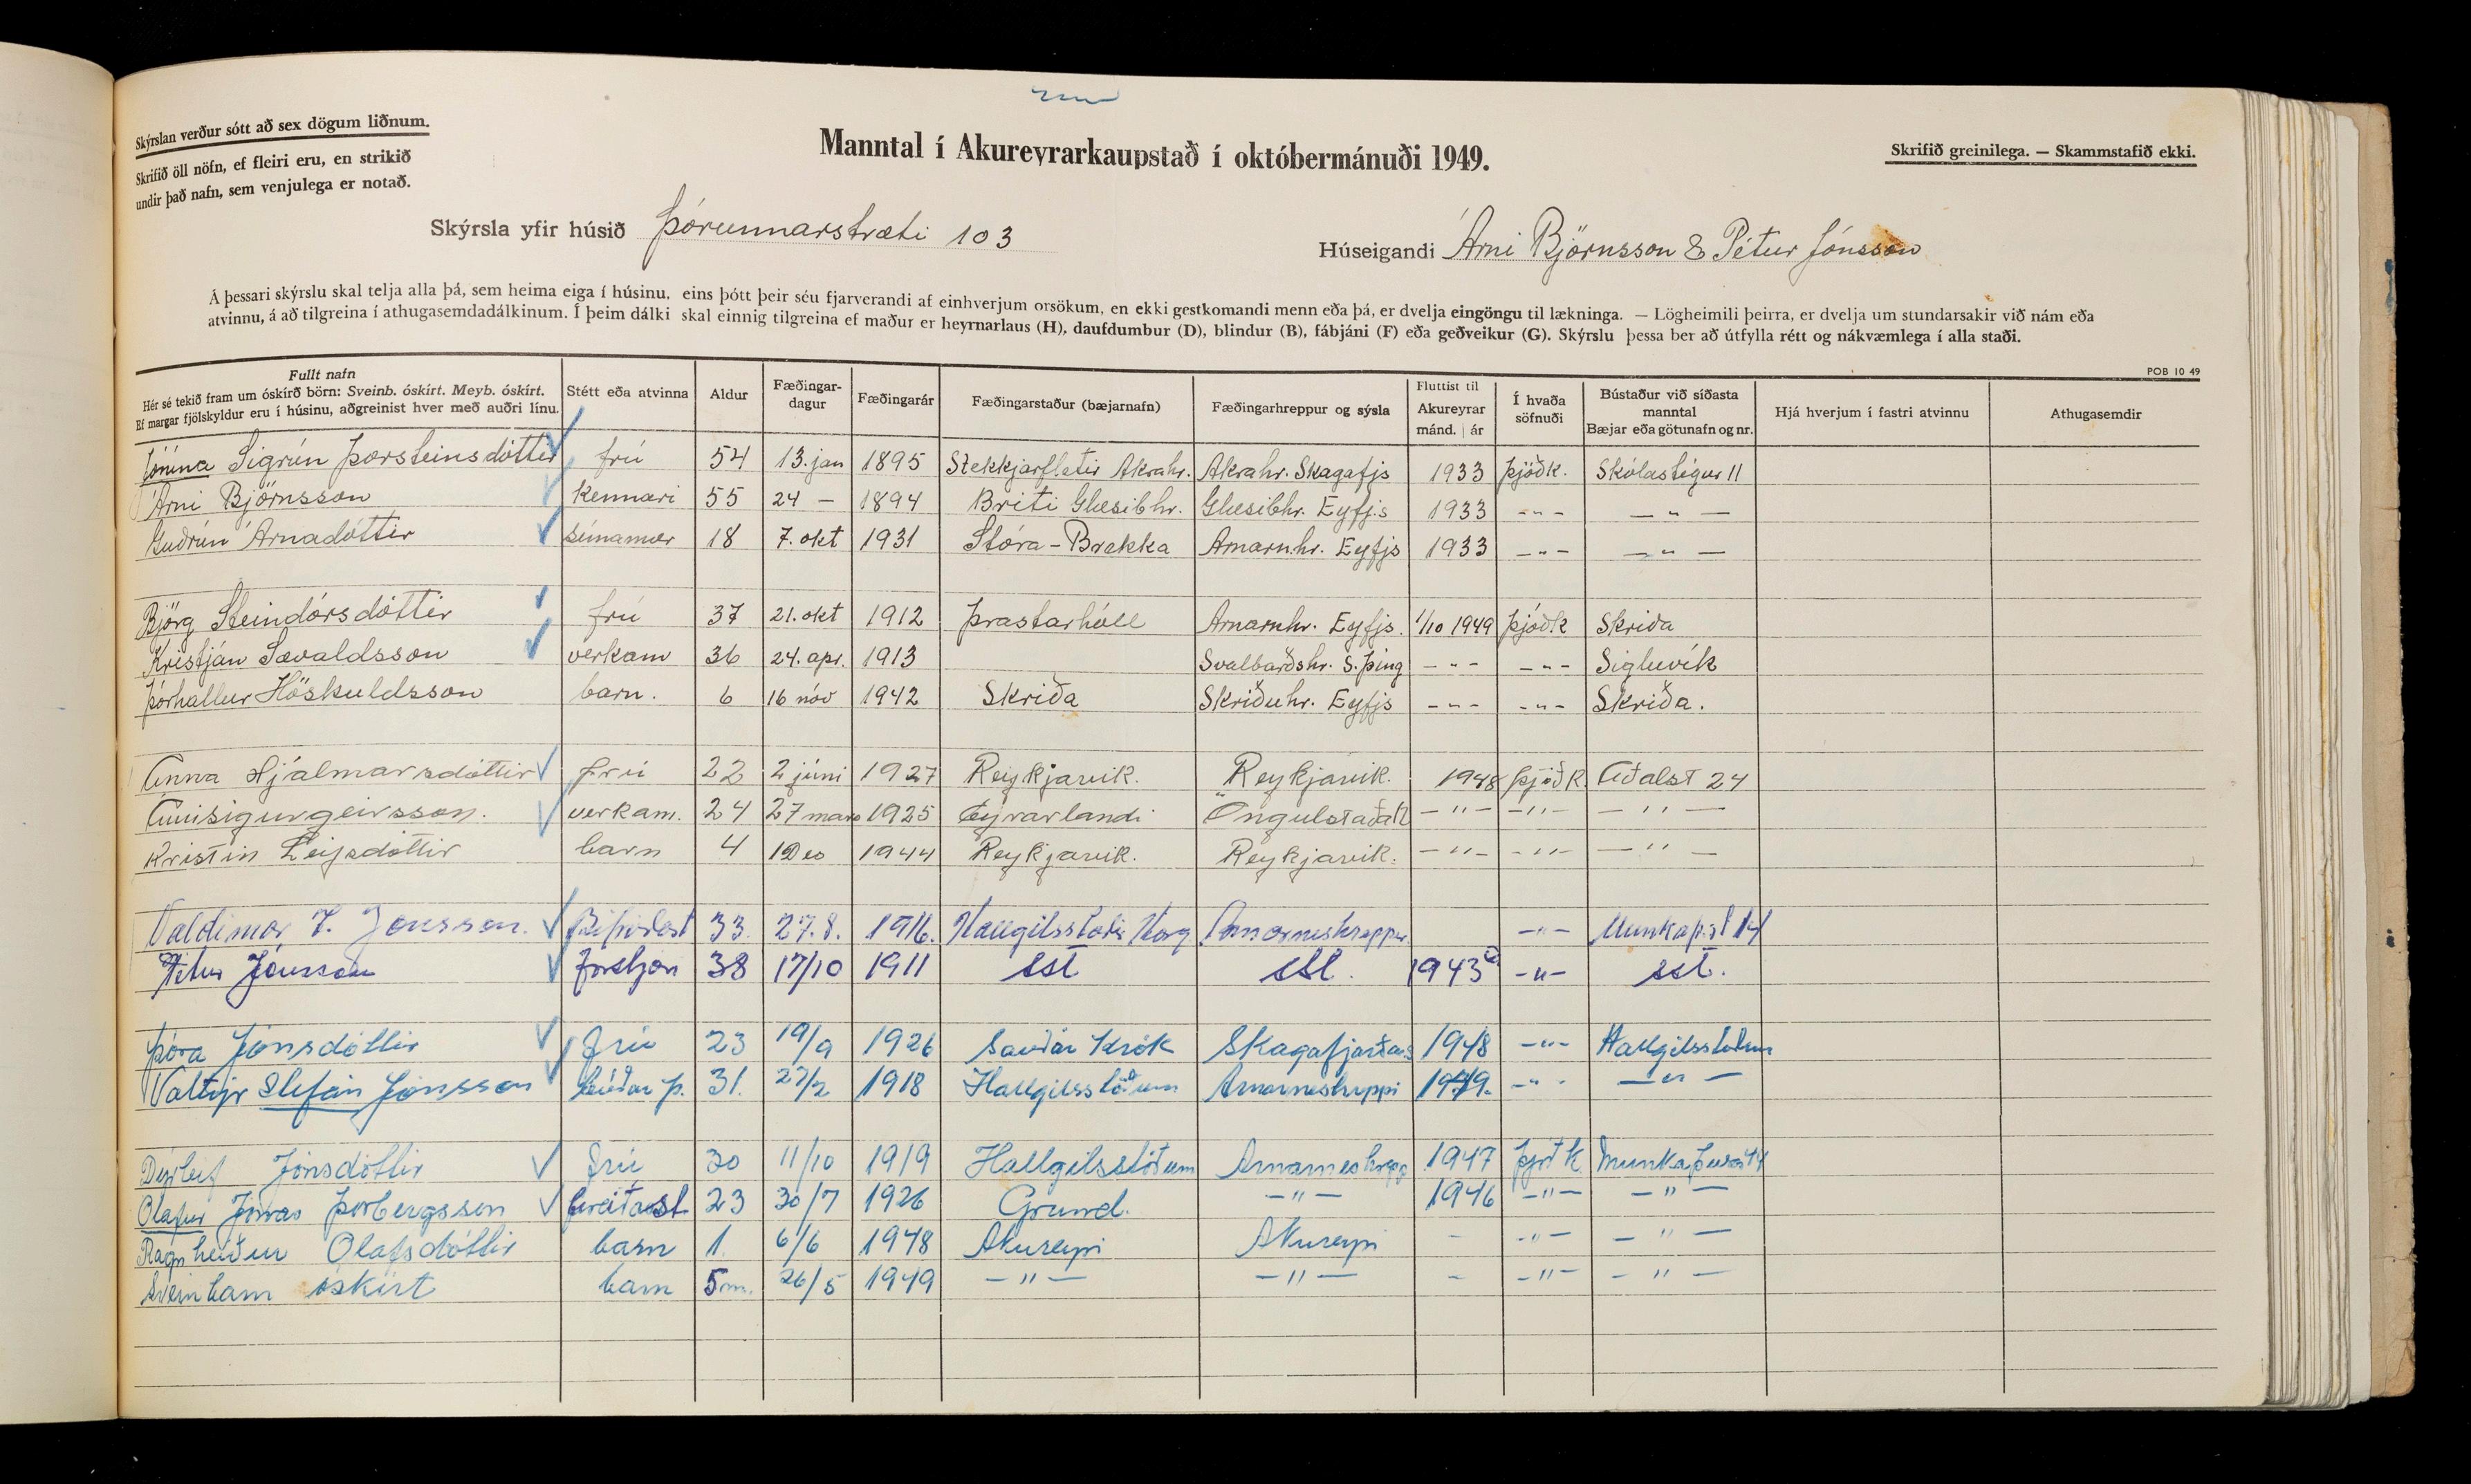 Skýrslan verður sótt að sex dögum liðnum.
Skrifið öll nöfn, ef fleiri eru, en strikið
undir það nafn, sem venjulega er notað.
Manntal í Akureyrarkaupstað í októbermánuði 1949.
Skrifið greinilega. — Skammstafið ekki.
Skýrsla yfir húsið Þórunnarstræti 103
Húseigandi Árni Björnsson & Pétur Jónsson
Á þessari skýrslu skal telja alla þá, sem heima eiga í húsinu, eins þótt þeir séu fjarverandi af einhverjum orsökum, en ekki gestkomandi menn eða þá, er dvelja eingöngu til lækninga. — Lögheimili þeirra, er dvelja um stundarsakir við nám eða
atvinnu, á að tilgreina í athugasemdadálkinum. Í þeim dálki skal einnig tilgreina ef maður er heyrnarlaus (H), daufdumbur (D), blindur (B), fábjáni (F) eða geðveikur (G). Skýrslu þessa ber að útfylla rétt og nákvæmlega í alla staði.
POB 10 49
Fullt nafn
Hér sé tekið fram um óskírð börn: Sveinb. óskírt. Meyb. óskírt.
Ef margar fjölskyldur eru í húsinu, aðgreinist hver með auðri línu.
Stétt eða atvinna
Aldur
Fæðingar-
dagur
Fæðingarár
Fæðingarstaður (bæjarnafn)
Fæðingarhreppur og sýsla
Fluttist til
Akureyrar
mánd. | ár
Í hvaða
söfnuði
Bústaður við síðasta
manntal
Bæjar eða götunafn og nr.
Hjá hverjum í fastri atvinnu
Athugasemdir
Jónína Sigrún Þorsteinsdóttir frú 54 13. jan 1895 Stekkjarflatir Akrahr. Akrahr. Skagafjs 1933 Þjóðk. Skólastígur 11
Árni Björnsson kennari 55 24 — 1894 Glæsibhr. Glæsibhr. Eyfj.s 1933 -"- — " —
Guðrún Árnadóttir símamær 18 7. okt 1931 Stóra-Brekka Arnarnhr. Eyfjs 1933 -"- — " —
Björg Steindórsdóttir frú 37 21. okt 1912 Þrastarhóll Arnarnhr. Eyfjs. 1/10 1949 Þjóðk Skriða
Kristján Sævaldsson verkam 36 24. apr. 1913 Svalbarðshr. S. Þing -"- -"- Sigluvík
Þórhallur Höskuldsson barn. 6 16 nóv 1942 Skriða Skriðuhr. Eyfjs -"- -"- Skriða.
Anna Hjálmarsdóttir frú 22 2 júni 1927 Reykjavik. Reykjavik. 1948 Þjóðk. Aðalst 24
verkam. 24 27 mars 1925 Eyrarlandi -"- -"- — " —
Kristin Leifsdóttir barn 4 1 Des 1944 Reykjavik. Reykjavik. -"- -"- — " —
Valdimar Jónsson. 33. 27.8. 1916. -"-
Pétur Jónsson 38 17/10 1911 sst sst. 1943 -"- sst.
Þóra Jónsdóttir Frú 23 19/9 1926 Sauðár Krók 1948 -"-
Valtýr Stefán Jónsson 31. 27/2 1918 Hallgilsstöðum Arnarneshreppi 1949. -"- — " —
Dýrleif Jónsdóttir Frú 30 11/10 1919 Hallgilsstöðum 1947 Þjóðk
Ólafur Jónas Þorbergsson 23 30/7 1926 Grund. -"- 1946 -"- -"-
Ragnheiður Ólafsdóttir barn 1. 6/6 1948 Akureyri Akureyri - -"- -"-
Sveinbarn óskírt barn 5 m. 26/5 1949 -"- -"- - -"- -"-